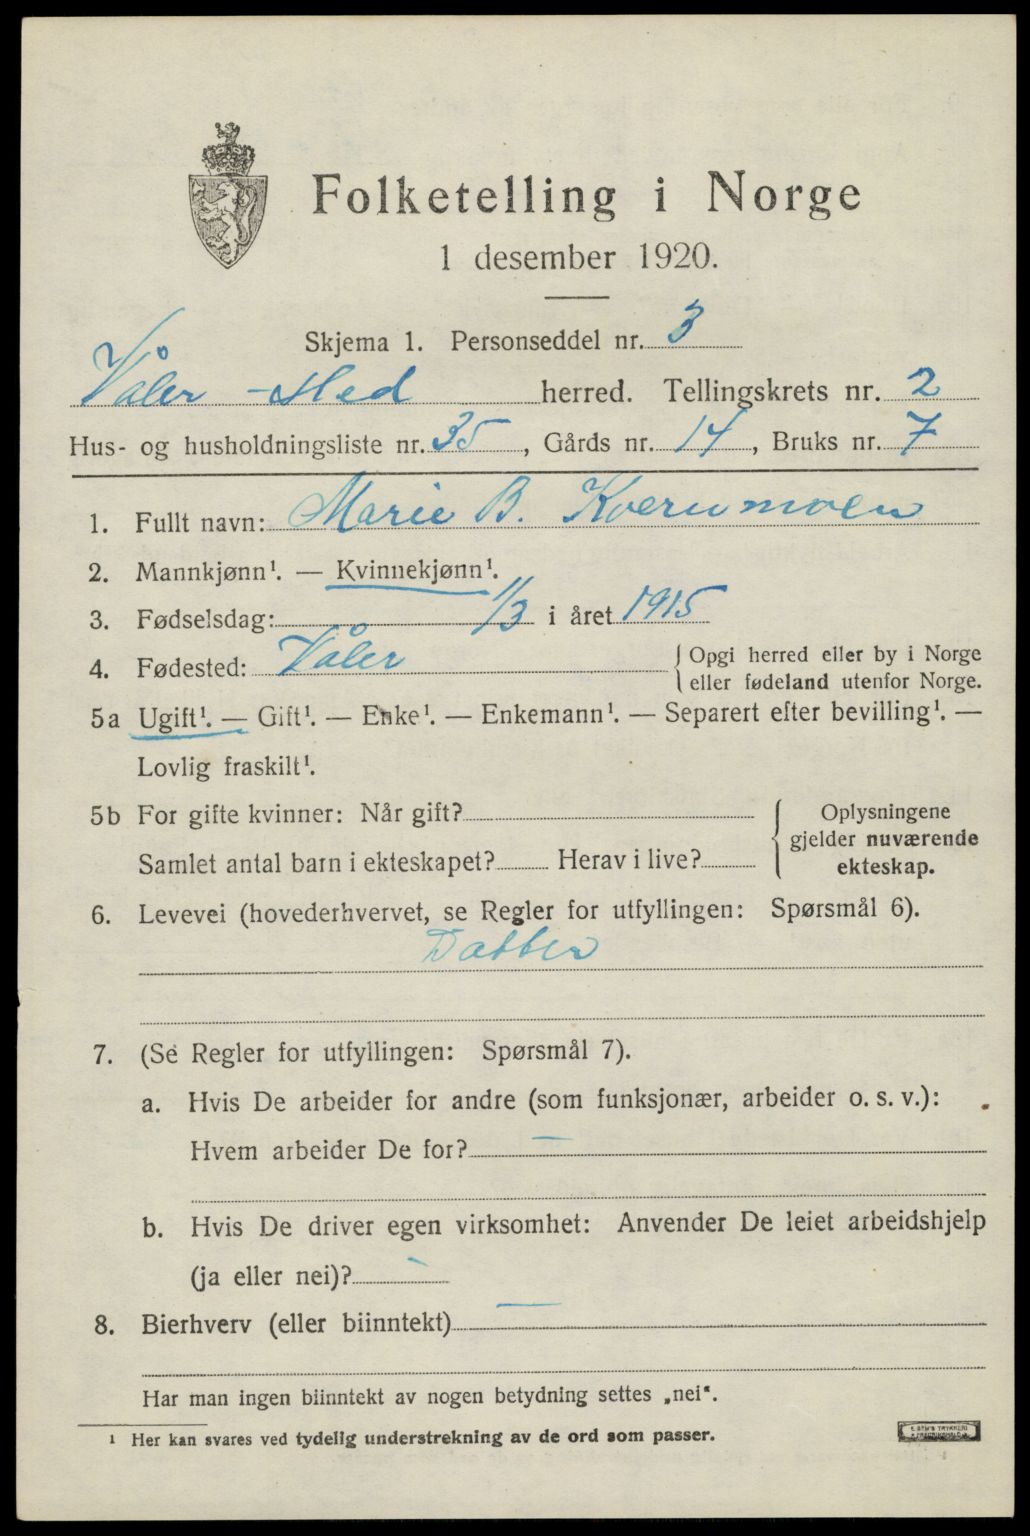 Folketelling i Norge
1 desember 1920.
Skjema 1. Personseddel nr. 3
Våler - Hed herred. Tellingskrets nr. 2
Hus- og husholdningsliste nr. 35, Gårds nr. 14, Bruks nr. 7
1. Fullt navn: Marie B. Kvernmoen
2. Mannkjønn¹. — Kvinnekjønn¹.
3. Fødselsdag: 1/3 i året 1915
4. Fødested: Våler { Opgi herred eller by i Norge
eller fødeland utenfor Norge.
5a Ugift¹. — Gift¹. — Enke¹. — Enkemann¹. — Separert efter bevilling¹. —
Lovlig fraskilt¹.
5b For gifte kvinner: Når gift? { Oplysningene
gjelder nuværende
Samlet antal barn i ekteskapet? Herav i live? ekteskap.
6. Levevei (hovederhvervet, se Regler for utfyllingen: Spørsmål 6).
Datter
7. (Se Regler for utfyllingen: Spørsmål 7).
a. Hvis De arbeider for andre (som funksjonær, arbeider o. s. v.):
Hvem arbeider De for? —
b. Hvis De driver egen virksomhet: Anvender De leiet arbeidshjelp
(ja eller nei)? —
8. Bierhverv (eller biinntekt) —
Har man ingen biinntekt av nogen betydning settes „nei".
¹ Her kan svares ved tydelig understrekning av de ord som passer.